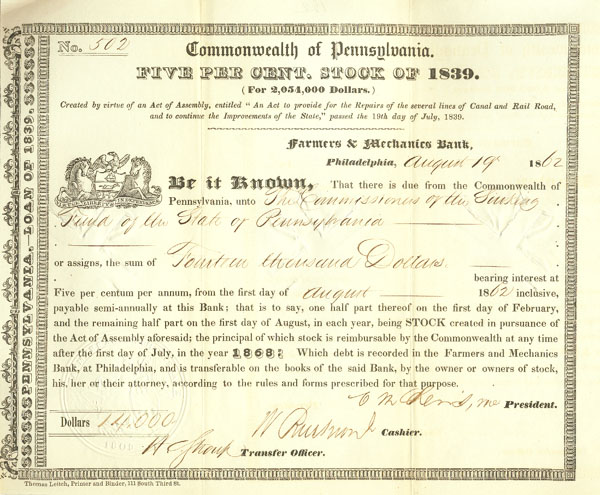 No. 502
Commonwealth of Pennsylvania.
FIVE PER CENT. STOCK OF 1839.
(For 2,054,000 Dollars.)
Created by virtue of an Act of Assembly, entitled "An Act to provide for the Repairs of the several lines of Canal and Rail Road,
and to continue the Improvements of the State," passed the 19th day of July, 1839.
Farmers & Mechanics Bank,
Philadelphia, August 19 1862
Be it Known, That there is due from the Commonwealth of
Pennsylvania, unto The Commissioners of the Sinking
Fund of the State of Pennsylvania
or assigns, the sum of Fourteen thousand Dollars
bearing interest at
Five per centum per annum, from the first day of August 1862 inclusive,
payable semi-annually at this Bank; that is to say, one half part thereof on the first day of February,
and the remaining half part on the first day of August, in each year, being STOCK created in pursuance of
the Act of Assembly aforesaid; the principal of which stock is reimbursable by the Commonwealth at any time
after the first day of July, in the year 1868: Which debt is recorded in the Farmers and Mechanics
Bank, at Philadelphia, and is transferable on the books of the said Bank, by the owner or owners of stock,
his, her or their attorney, according to the rules and forms prescribed for that purpose.
President.
Dollars 14,000
W Cashier.
Transfer Officer.
Thomas Leitch, Printer and Binder, 111 South Third St.
PENNSYLVANIA.—LOAN OF 1839.